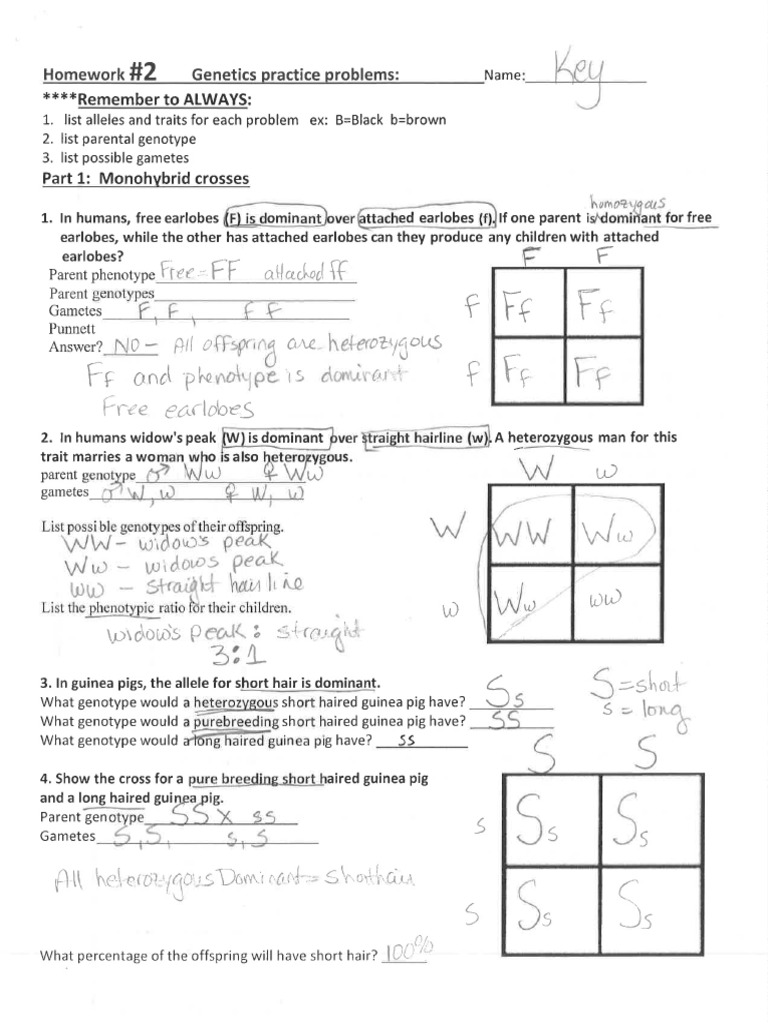 Homework #2 Genetics practice problems: Name: Key
****Remember to ALWAYS:
1. list alleles and traits for each problem ex: B=Black b=brown
2. list parental genotype
3. list possible gametes
Part 1: Monohybrid crosses
homozygous
1. In humans, free earlobes (F) is dominant over attached earlobes (f). If one parent is^dominant for free
earlobes, while the other has attached earlobes can they produce any children with attached
earlobes?
F F
Parent phenotype Free=FF attached ff
Parent genotypes
Gametes F, F, f f
f Ff Ff
Punnett
Answer? NO - All offspring are heterozygous
f Ff Ff
Ff and phenotype is dominant
Free earlobes
2. In humans widow's peak (W) is dominant over straight hairline (w). A heterozygous man for this
trait marries a woman who is also heterozygous.
parent genotype ♂ Ww ♀ Ww
W w
gametes ♂ W, w ♀ W, w
List possible genotypes of their offspring.
W WW Ww
WW - widow's peak
Ww - widows peak
ww - straight hairline
w Ww ww
List the phenotypic ratio for their children.
widow's peak : straight
3:1
3. In guinea pigs, the allele for short hair is dominant.
S=short
s=long
What genotype would a heterozygous short haired guinea pig have? Ss
What genotype would a purebreeding short haired guinea pig have? SS
What genotype would a long haired guinea pig have? ss
S S
4. Show the cross for a pure breeding short haired guinea pig
and a long haired guinea pig.
Parent genotype SS x ss
s Ss Ss
Gametes S, S, s, s
All heterozygous Dominant = Shorthair
s Ss Ss
What percentage of the offspring will have short hair? 100%